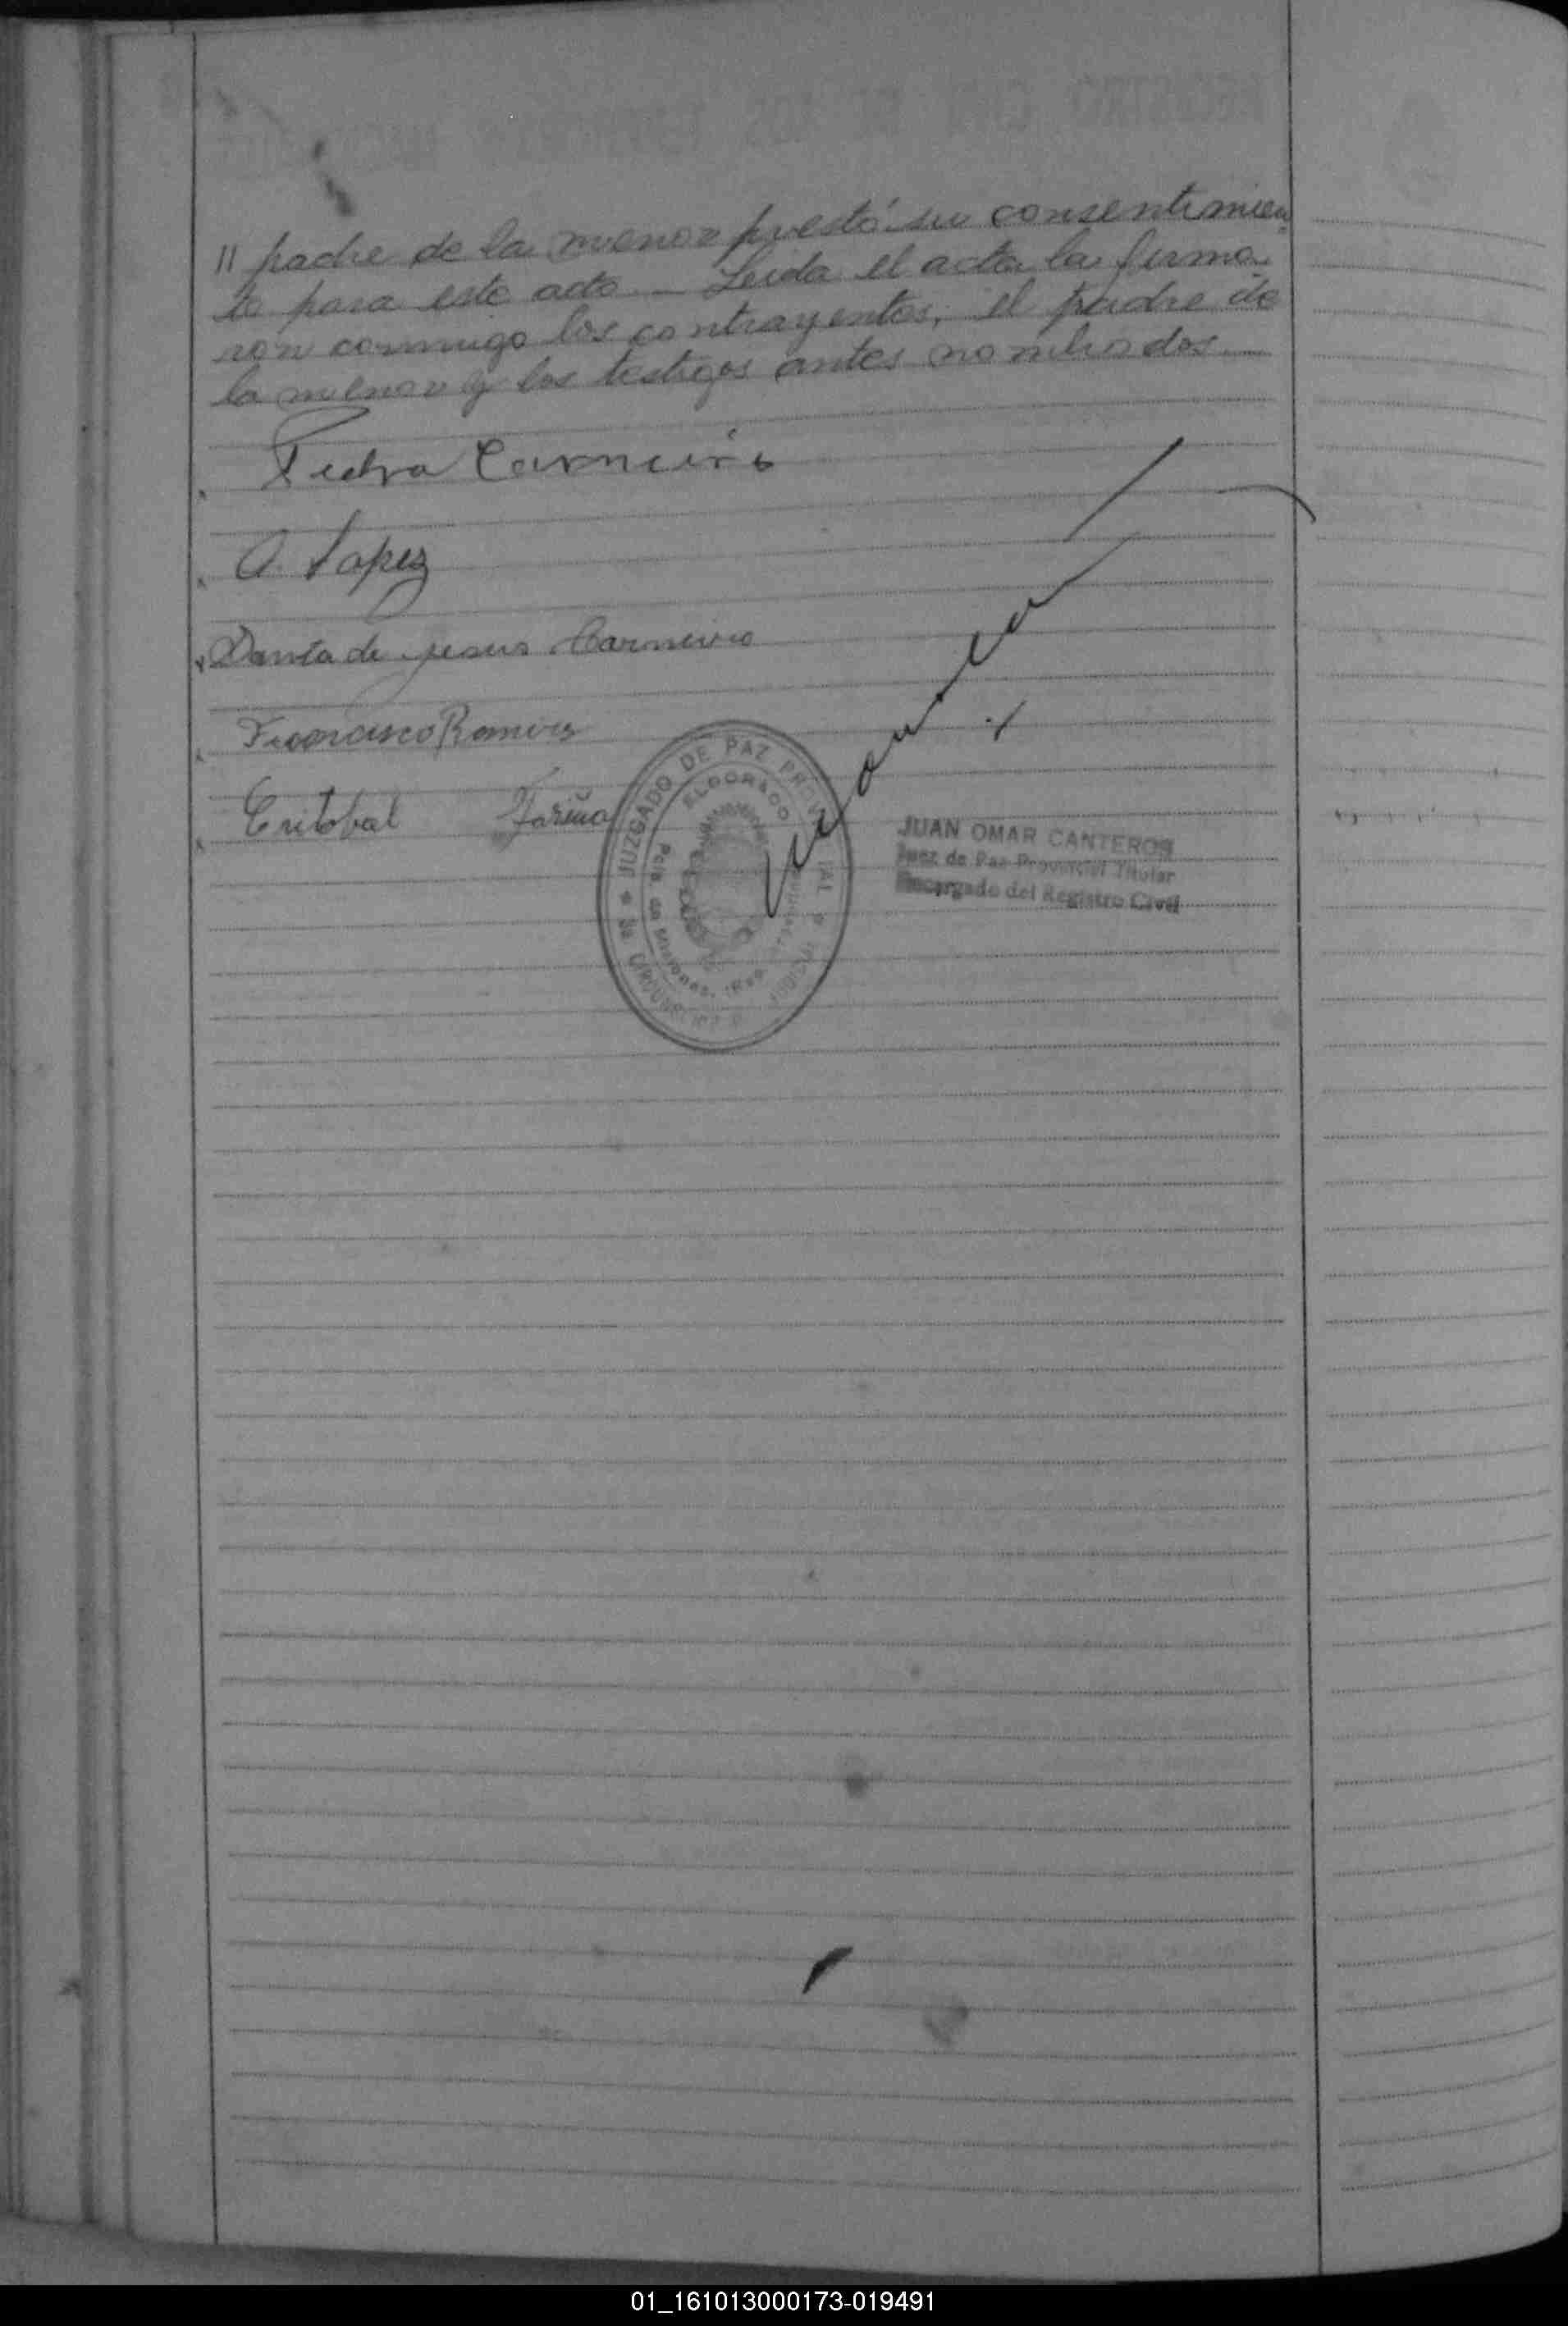 // padre de la menor prestó su consentimien
to para este acto — Leida el acta la firma-
ron conmigo los contrayentes, el padre de
la menor y los testigos antes nombrados —
Pedro Carneiro
A. Lopez
de Jesus Carneiro
Francisco Ramirez
Critobal Fariña
JUZGADO DE PAZ PROVINCIAL
ELDORADO
Pcia. de Misiones.
JUAN OMAR CANTEROS
Juez de Paz Provincial Titular
Encargado del Registro Civil
01_161013000173-019491